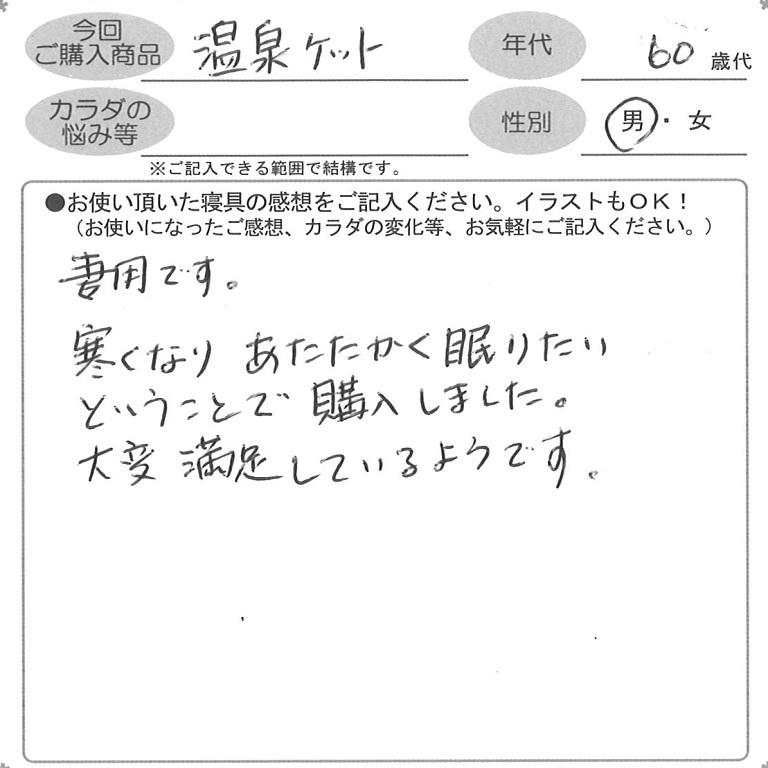 今回
ご購入商品
温泉ケット
年代
60 歳代
カラダの
悩み等
性別
男・女
※ご記入できる範囲で結構です。
●お使い頂いた寝具の感想をご記入ください。イラストもOK!
(お使いになったご感想、カラダの変化等、お気軽にご記入ください。)
妻用です。
寒くなり あたたかく眠りたい
ということで購入しました。
大変満足しているようです。